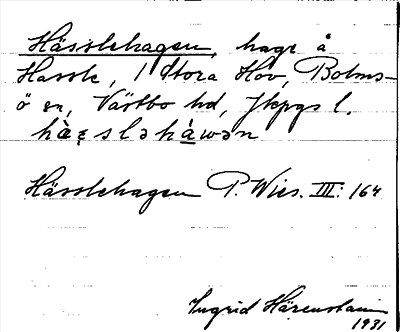 Hässlehagen, hage å
Hassle, 1 Stora Hov, Bolms-
ö sn, Västbo hd, Jkpgs l.
hàɛsləháwən
Hässlehagen P. Wies. III: 164
Ingrid Härenstam
1931